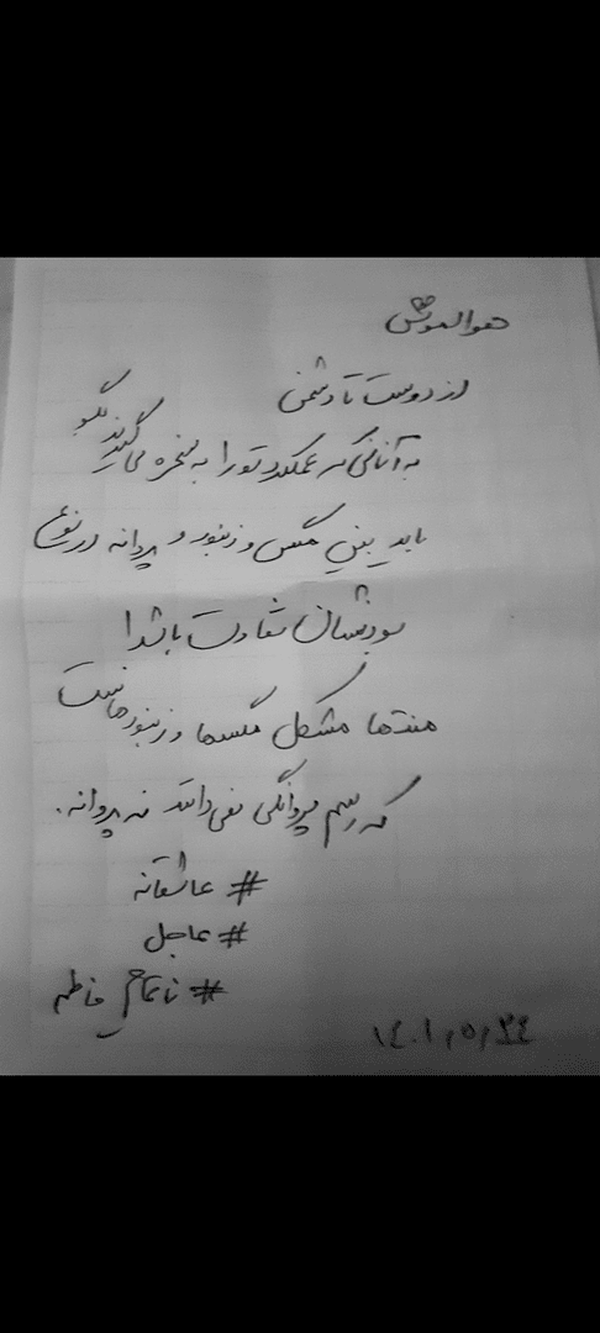 هوالموثق
از دوست تا دشمن
به آنانی که عملکرد تو را به سخره می گیرند بگو
باید بین مگس و زنبور و پروانه در نوع
بودنشان تفاوت باشد!
منتها مشکل مگسها و زنبورهاست
که رسم پروانگی نمی دانند نه پروانه.
# عاشقانه
# عاجل
# ناتمام فاطمه
۱۴۰۱,۵,۲۴